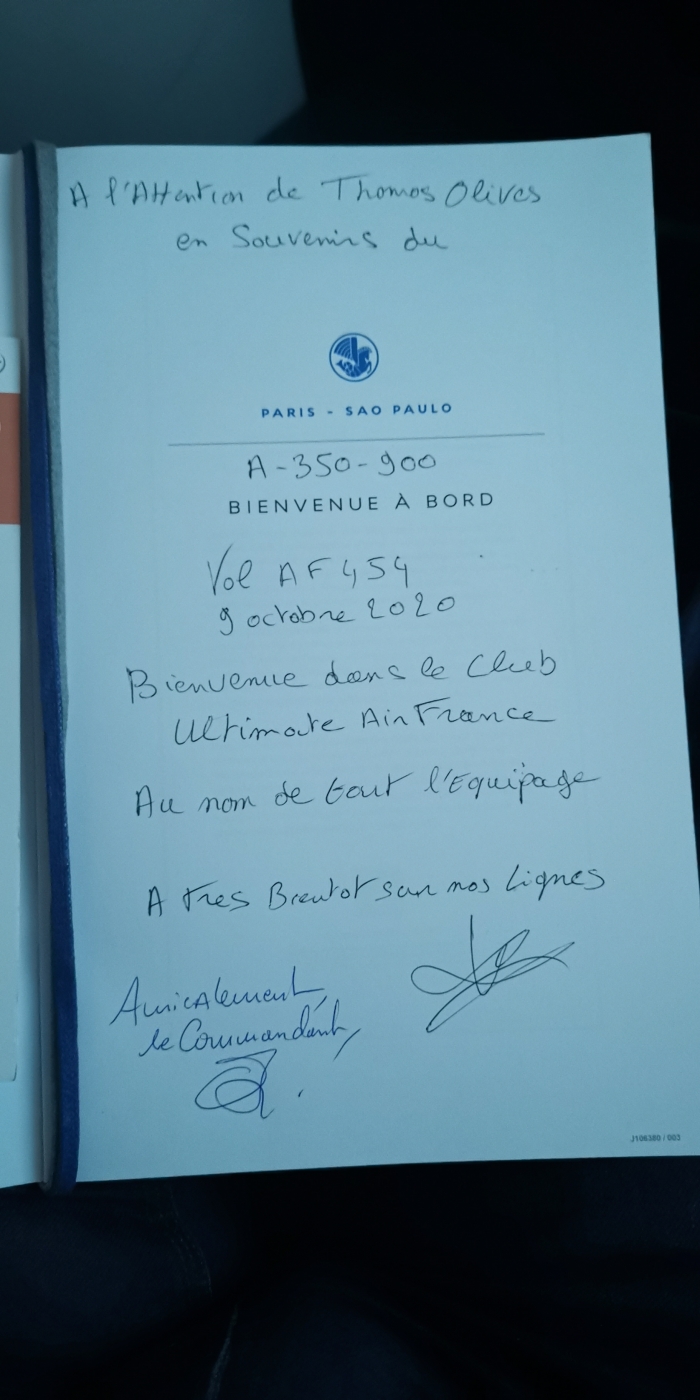 A l'Attention de Thomas Olives
en Souvenirs du
PARIS - SAO PAULO
A-350-900
BIENVENUE À BORD
Vol AF 454
9 octobre 2020
Bienvenue dans le Club
Ultimate Air France
Au nom de tout l'Equipage
A tres Bientot sur nos Lignes
Amicalement,
le Commandant,
J106380 / 003